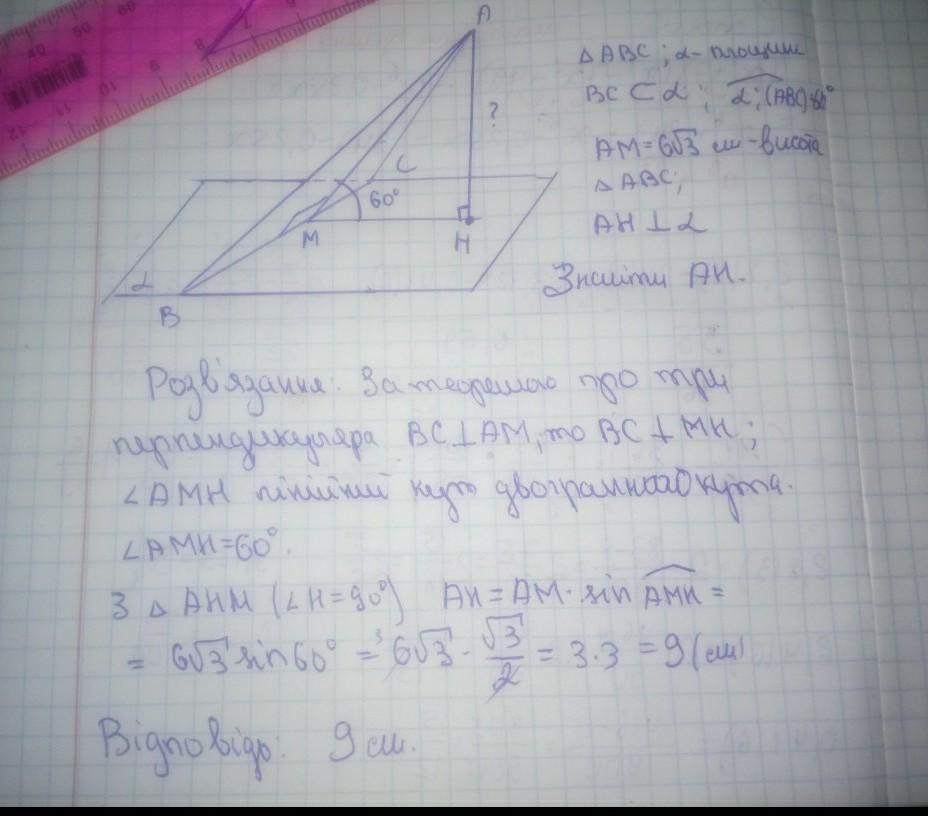 60
50
40
7
8
9
10
11
12
A
?
C
60°
M
H
α
B
△ABC; α - площин
BC ⊂ α; α;(ABC)=60°
AM = 6√3 см - висота
△ABC;
AH ⊥ α
Знайти AH.
Розв'язання: За теоремою про три
перпендикуляра BC⊥AM, то BC⊥MH;
∠AMH лінійний кут двогранного кута.
∠AMH=60°.
З △ AHM (∠H=90°) AH = AM · sin AMH =
= 6√3 sin60° = ³6√3 · √3/2 = 3·3 = 9 (см)
Відповідь: 9 см.